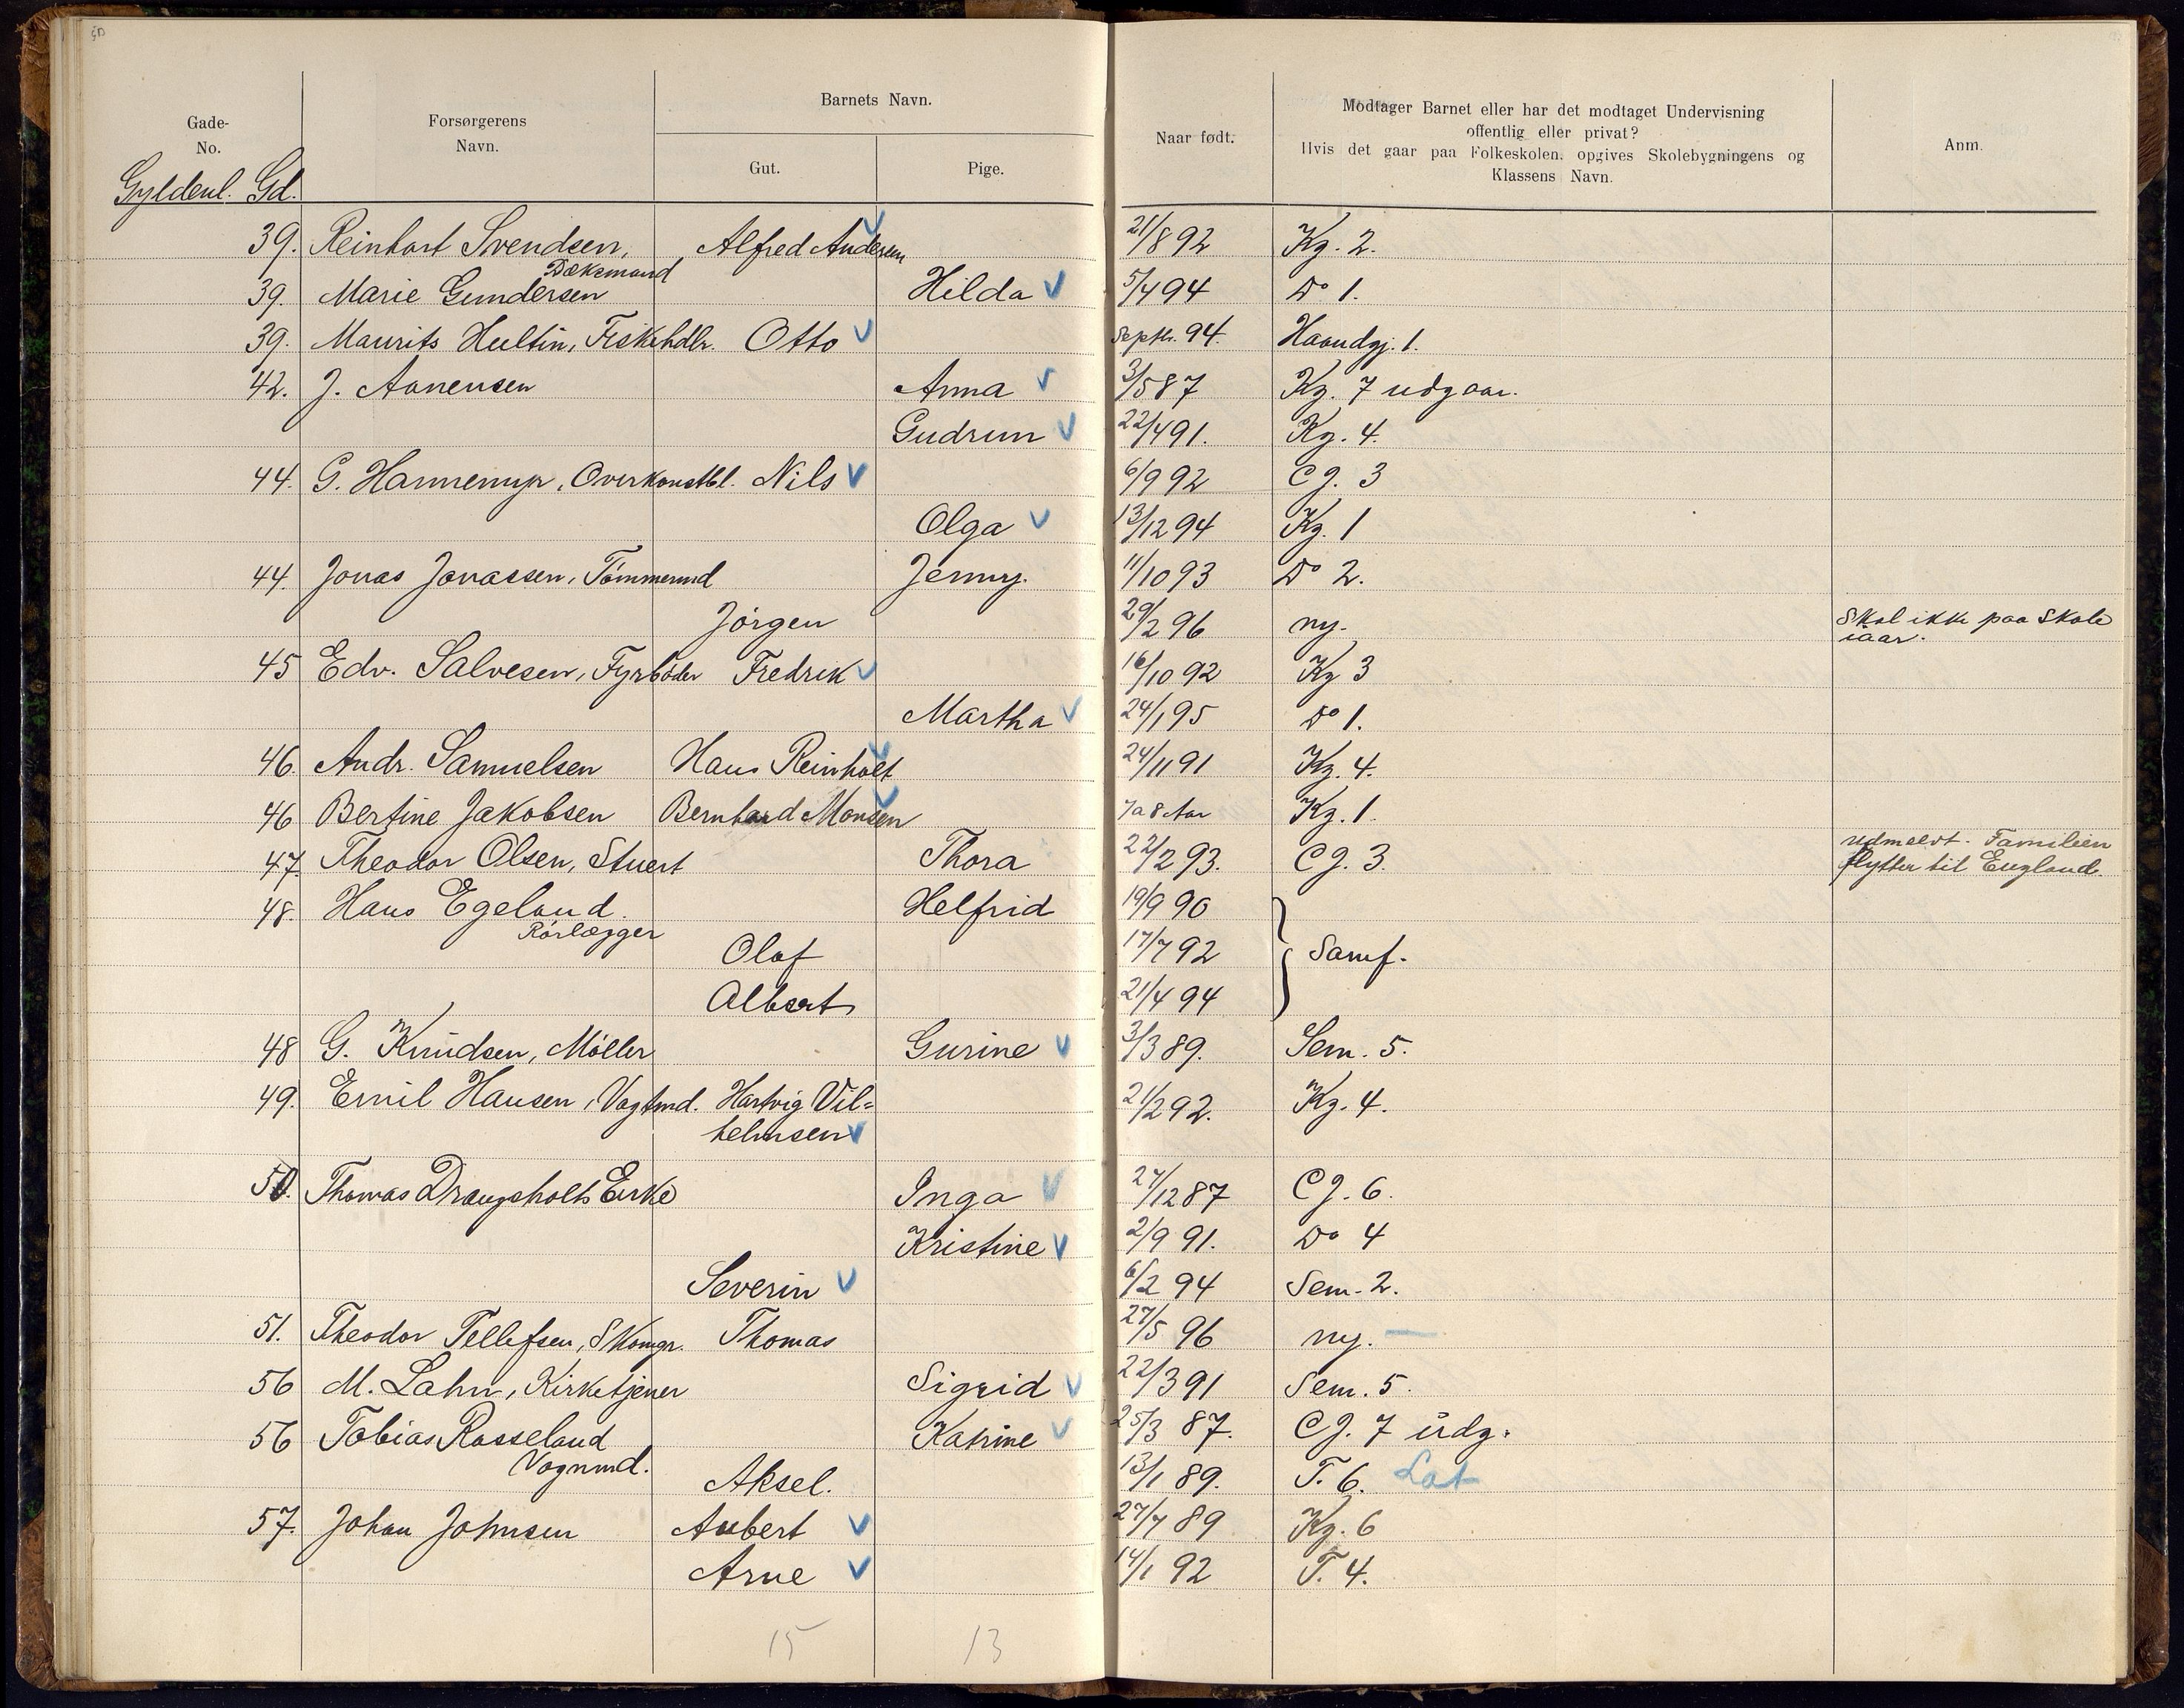 Gade-
No.
Forsørgerens
Navn.
Barnets Navn.
Gut.
Pige.
Naar født.
Modtager Barnet eller har det modtaget Undervisning
offentlig eller privat?
Hvis det gaar paa Folkeskolen, opgives Skolebygningens og
Klassens Navn.
Anm.
Gyldenl. Gd.
39. Reinhart Svendsen, Alfred Andersen 21/8 92 Kg. 2.
Dæksmand
39. Marie Gundersen Hilda 5/7 94 Do 1.
39. Maurits Hultin, Fiskehdlr. Otto Septbr. 94. Haandgj. 1.
42. J. Aanensen Anna 3/5 87 Kg. 7 udgaar.
Gudrun 22/4 91. Kg. 4.
44. G. Hannemyr, Overkonstbl. Nils 6/9 92 Cg. 3
Olga 13/12 94 Kg. 1
44. Jonas Jonassen, Tømmermd Jenny. 11/10 93 Do 2.
Jørgen 29/2 96 ny. Skal ikke paa Skole
iaar.
45 Edv. Salvesen, Fyrbøder Fredrik 16/10 92 Kg 3
Martha 24/1 95 Do 1.
46. Andr. Samuelsen Hans Reinholt 24/11 91 Kg. 4.
46 Bertine Jakobsen Bernhard Monsen 7 a 8 Aar Kg. 1.
47. Theodor Olsen, Stuert Thora 22/2 93. Cg. 3. udmeldt. Familien
flytter til England.
48. Hans Egeland. Helfrid 19/9 90
Rørlægger
Olaf 17/7 92 Samf.
Albert 21/4 94
48 G. Knudsen, Møller Gurine 3/3 89. Sem. 5.
49. Emil Hansen, Vagtmd. Hartvig Vil=
helmsen 21/2 92. Kg. 4.
50. Thomas Draugsholts Enke Inga 27/12 87 Cg. 6.
Kristine 2/9 91. Do 4
Severin 6/2 94 Sem. 2.
51. Theodor Tellefsen, Skomgr. Thomas 27/5 96 ny. —
56 M. Lahn, Kirketjener Sigrid 22/3 91 Sem. 5.
56 Tobias Rosseland Katrine 25/3 87. Cg. 7 udg.
Vognmd.
Aksel. 13/1 89. T. 6. Lat
57. Johan Johnsen Aubert 27/7 89 Kg. 6
Arne 14/1 92 T. 4.
15 13